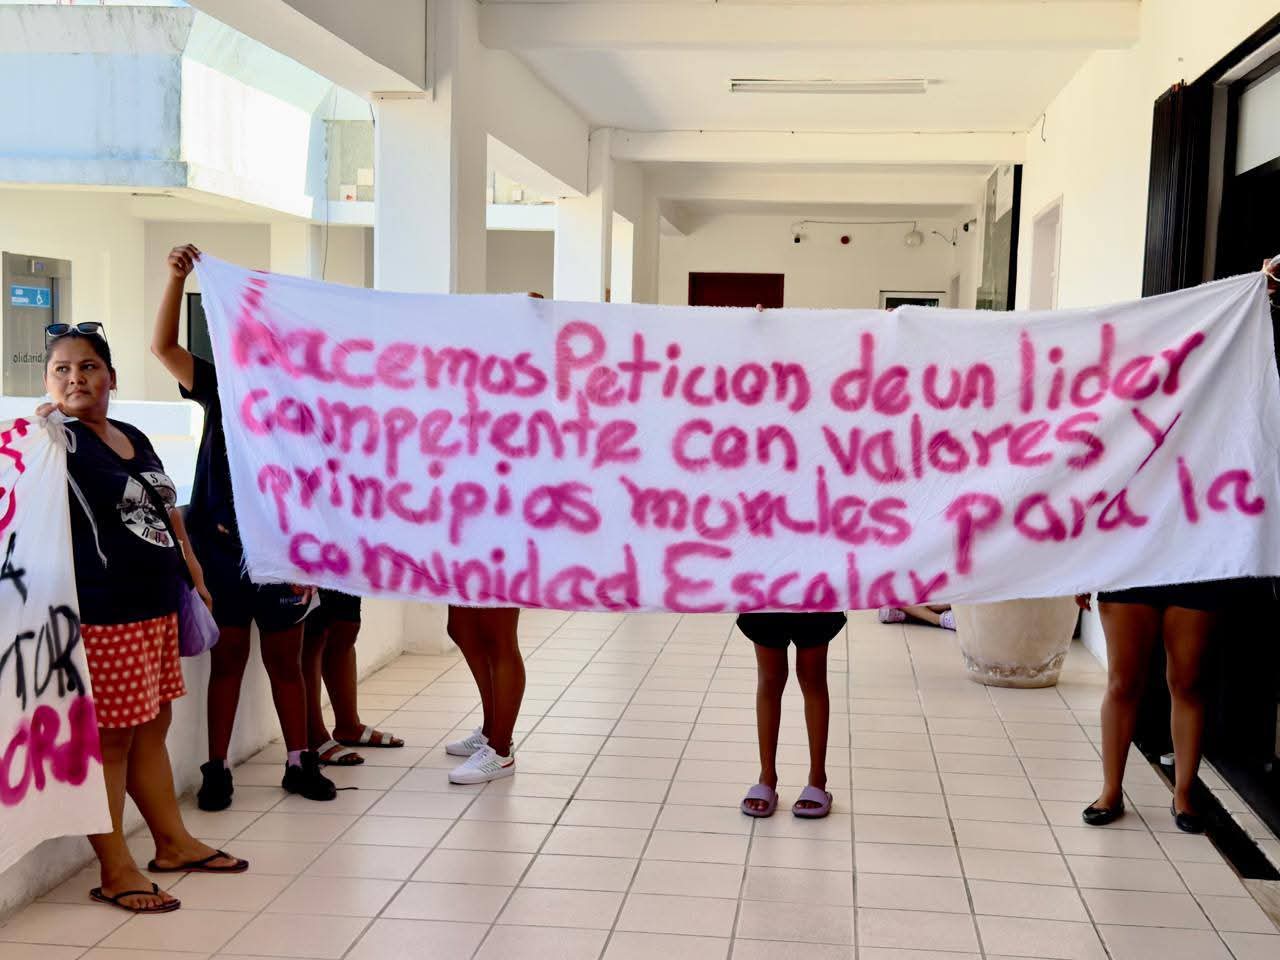 hacemos Peticion de un lider
competente con valores y
principios morales para la
comunidad Escolar